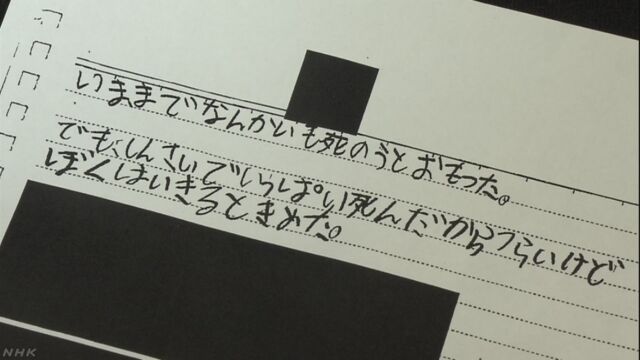 いままでなんかいも死のうとおもった。
でも、しんさいでいっぱい死んだからつらいけど
ぼくはいきるときめた。
NHK